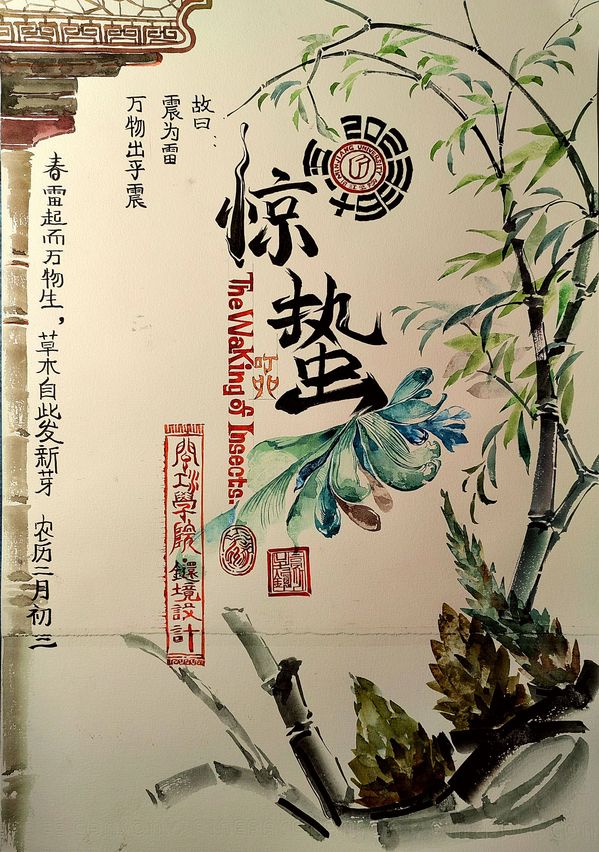 故曰
震为雷
万物出乎震
惊蛰
The Waking of Insects.
春雷起而万物生，草木自此发新芽 农历二月初三
學院環境設計